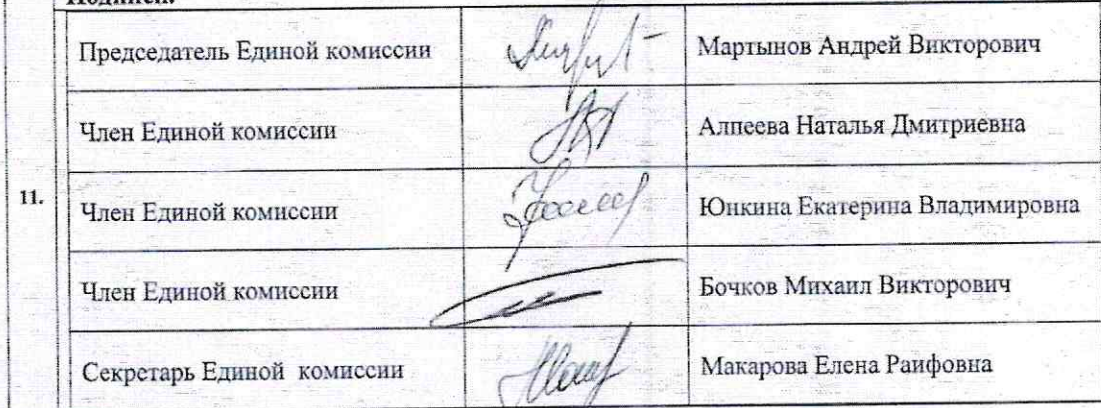 Подписи:
Председатель Единой комиссии Мартынов Андрей Викторович
Член Единой комиссии Алпеева Наталья Дмитриевна
11.
Член Единой комиссии Юнкина Екатерина Владимировна
Член Единой комиссии Бочков Михаил Викторович
Секретарь Единой комиссии Макарова Елена Раифовна